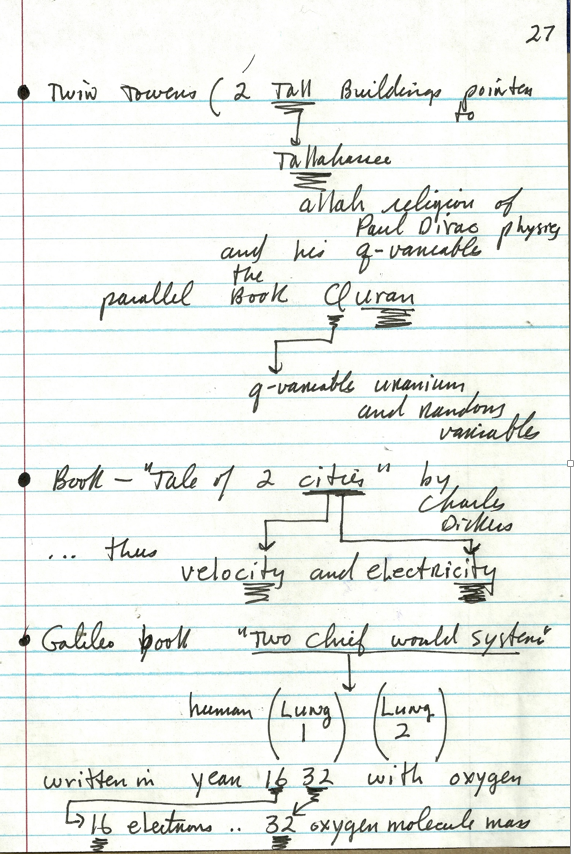 27
• Twin Towers ( 2 Tall Buildings pointen to
Tallahasee
allah religion of
Paul Dirac physics
and his q-variable
parallel the Book Quran
q-variable uranium
and random
variables
• Book – "Tale of 2 cities" by
Charles
Dickens
... thus
velocity and electricity
• Galileo book "Two chief would system"
human (Lung 1) (Lung 2)
written in year 16 32 with oxygen
16 electrons .. 32 oxygen molecule mass